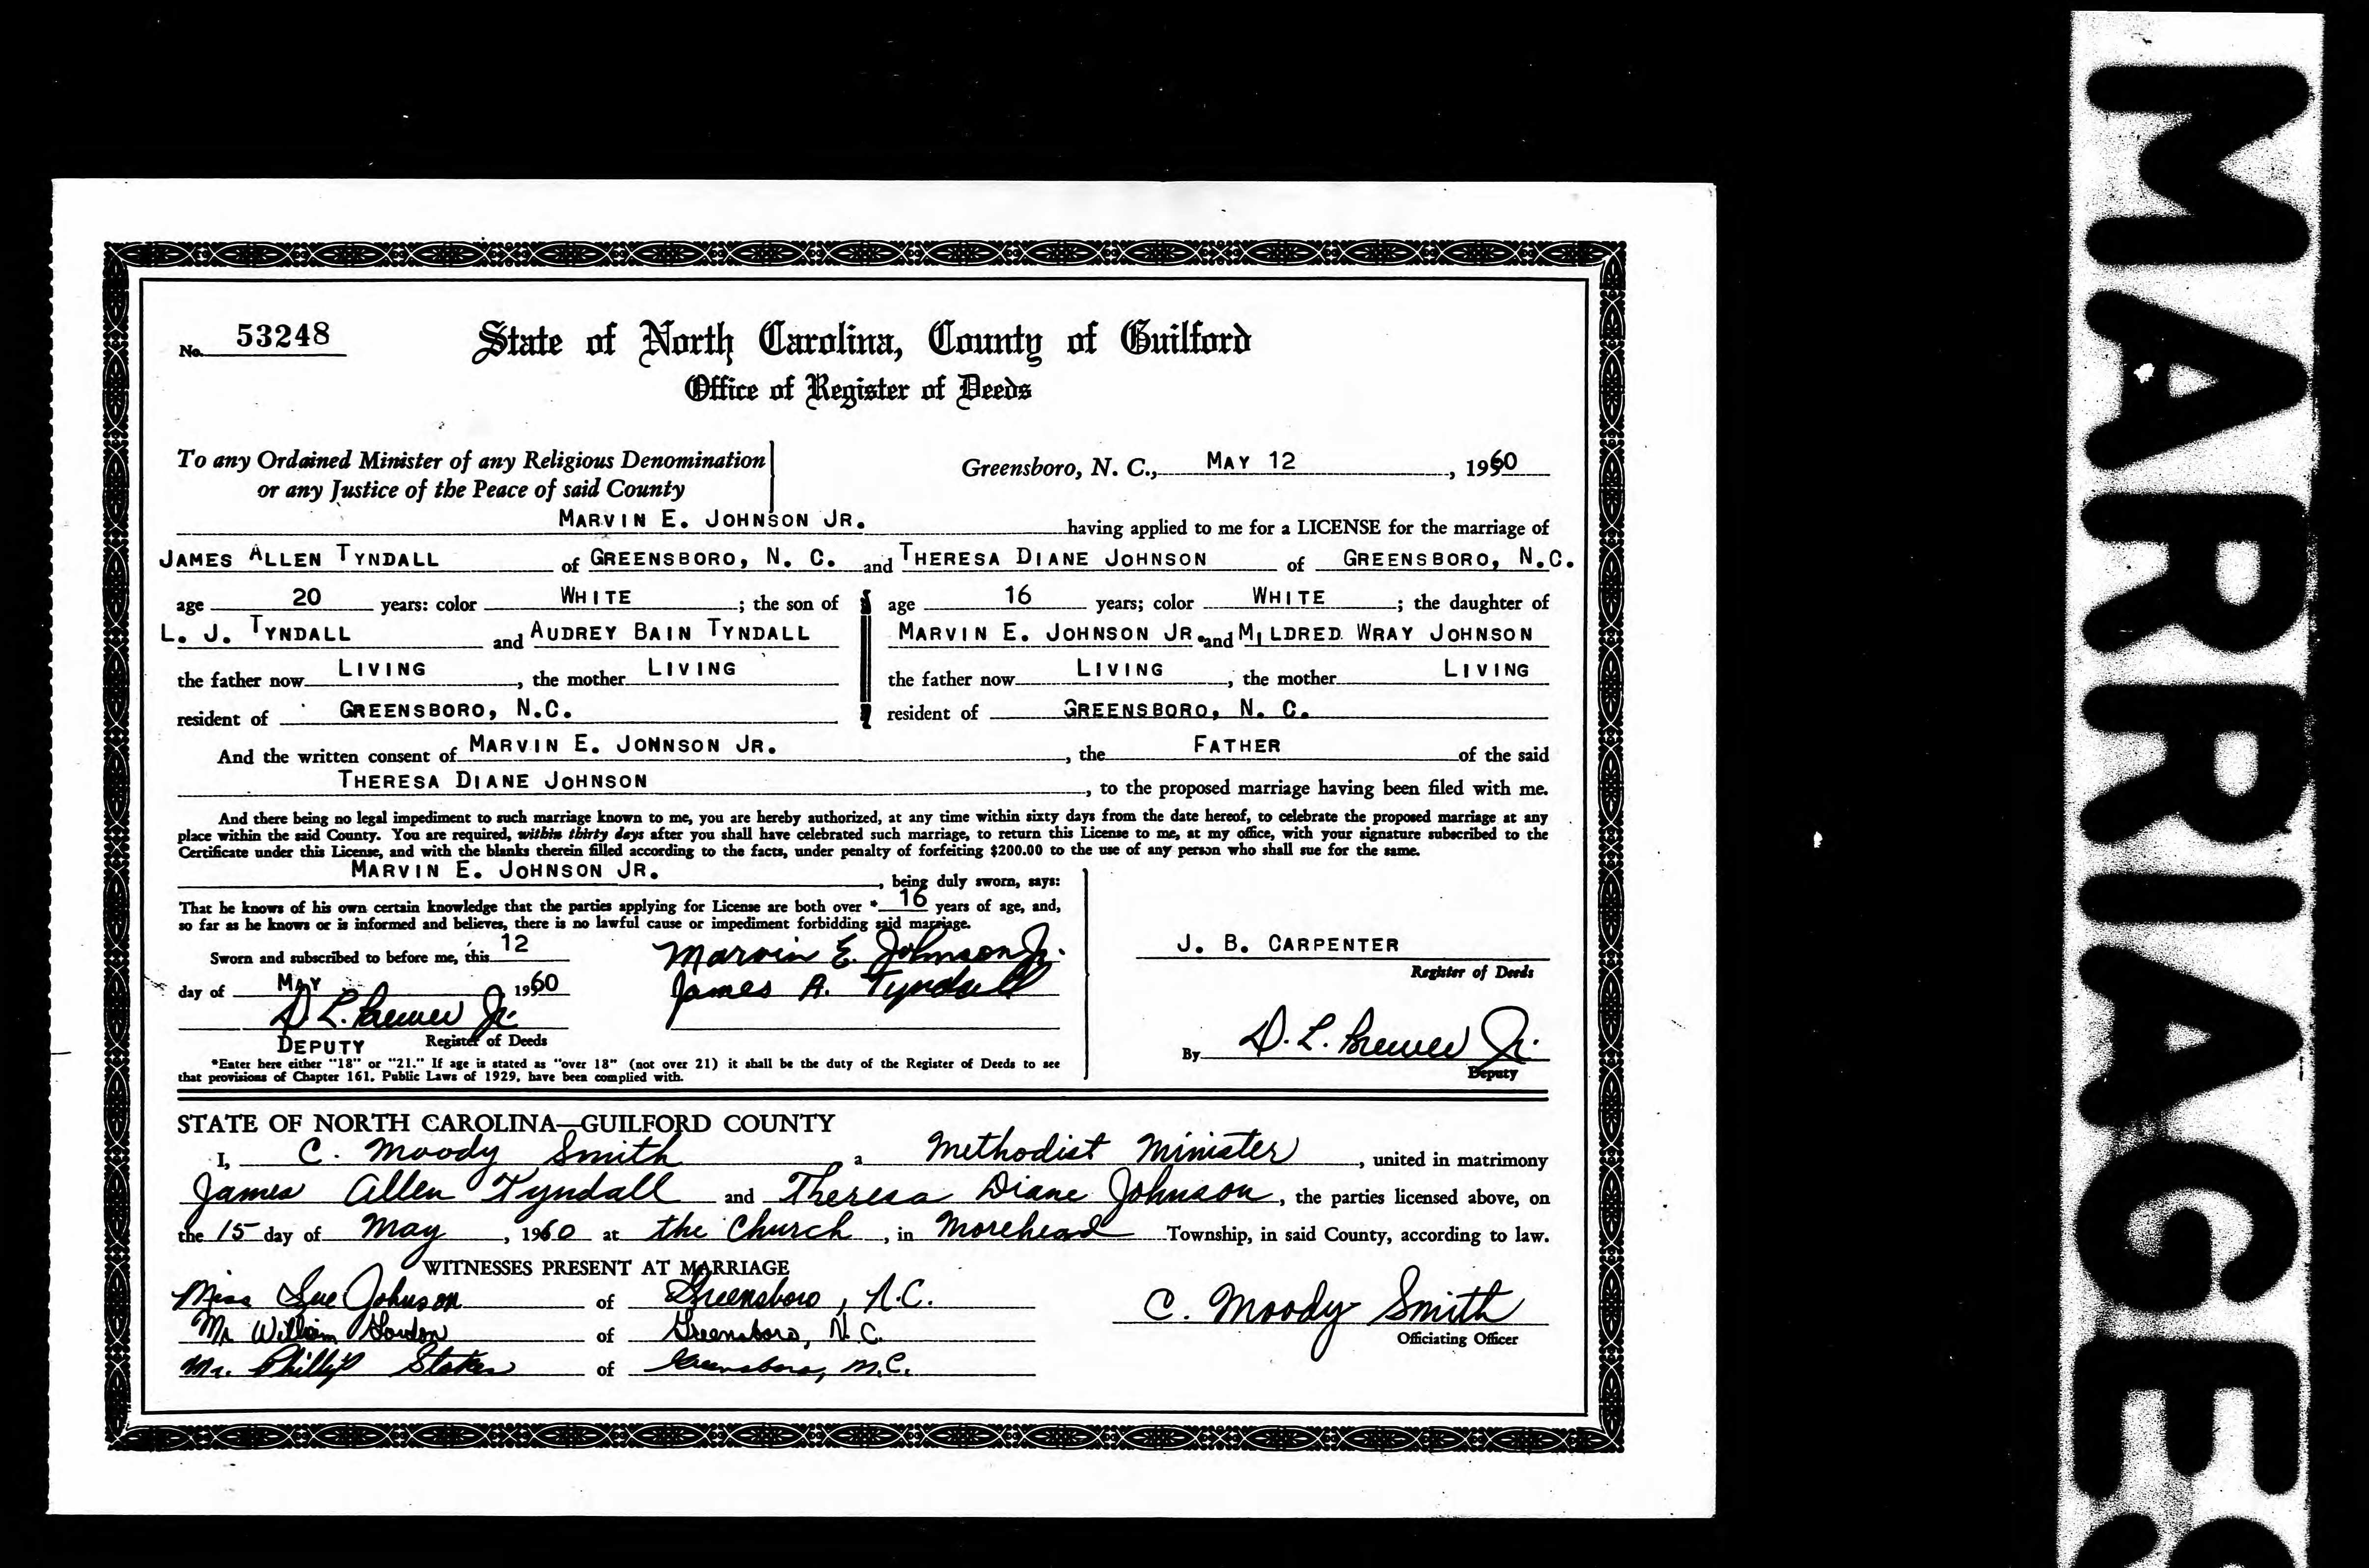 No. 53248
State of North Carolina, County of Guilford
Office of Register of Deeds
To any Ordained Minister of any Religious Denomination
or any Justice of the Peace of said County
Greensboro, N. C., MAY 12, 1960
MARVIN E. JOHNSON JR. having applied to me for a LICENSE for the marriage of
JAMES ALLEN TYNDALL of GREENSBORO, N. C. and THERESA DIANE JOHNSON of GREENSBORO, N.C.
age 20 years: color WHITE; the son of age 16 years; color WHITE; the daughter of
L. J. TYNDALL and AUDREY BAIN TYNDALL MARVIN E. JOHNSON JR. and MILDRED WRAY JOHNSON
the father now LIVING, the mother LIVING the father now LIVING, the mother LIVING
resident of GREENSBORO, N.C. resident of GREENSBORO, N. C.
And the written consent of MARVIN E. JONNSON JR., the FATHER of the said
THERESA DIANE JOHNSON, to the proposed marriage having been filed with me.
And there being no legal impediment to such marriage known to me, you are hereby authorized, at any time within sixty days from the date hereof, to celebrate the proposed marriage at any
place within the said County. You are required, within thirty days after you shall have celebrated such marriage, to return this License to me, at my office, with your signature subscribed to the
Certificate under this License, and with the blanks therein filled according to the facts, under penalty of forfeiting $200.00 to the use of any person who shall sue for the same.
MARVIN E. JOHNSON JR., being duly sworn, says:
That he knows of his own certain knowledge that the parties applying for License are both over * 16 years of age, and,
so far as he knows or is informed and believes, there is no lawful cause or impediment forbidding said marriage.
Sworn and subscribed to before me, this 12
day of MAY 1960
Marvin E. Johnson Jr.
James A. Tyndall
D. L. Brewer Jr.
DEPUTY Register of Deeds
*Enter here either "18" or "21." If age is stated as "over 18" (not over 21) it shall be the duty of the Register of Deeds to see
that provisions of Chapter 161, Public Laws of 1929, have been complied with.
J. B. CARPENTER
Register of Deeds
By D. L. Brewer Jr.
Deputy
STATE OF NORTH CAROLINA—GUILFORD COUNTY
I, C. Moody Smith a Methodist Minister, united in matrimony
James Allen Tyndall and Theresa Diane Johnson, the parties licensed above, on
the 15 day of May, 1960 at the Church, in Morehead Township, in said County, according to law.
WITNESSES PRESENT AT MARRIAGE
Miss Sue Johnson of Greensboro, N.C.
Mr William Gordon of Greensboro, N.C.
Mr. Phillip Stokes of Greensboro, N.C.
C. Moody Smith
Officiating Officer
MARRIAGES